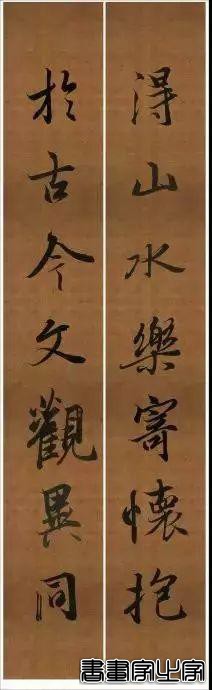 得山水樂寄懷抱
於古今文觀異同
書畫家必字